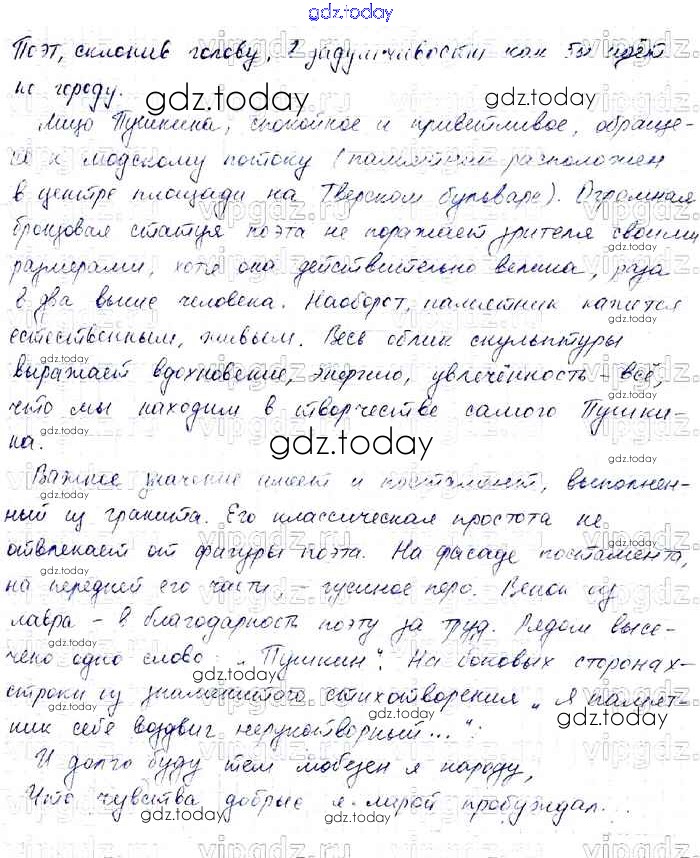 gdz.today
Поэт, склонив голову, в задумчивости как бы идёт
по городу.
gdz.today
Лицо Пушкина, спокойное и приветливое, обраще-
но к людскому потоку (памятник расположен
в центре площади на Тверском бульваре). Огромная
бронзовая статуя поэта не поражает зрителя своими
размерами, хотя она действительно велика, раза
в два выше человека. Наоборот, памятник кажется
естественным, живым. Весь облик скульптуры
выражает вдохновение, энергию, увлечённость – всё,
что мы находим в творчестве самого Пушки-
на.
gdz.today
Важное значение имеет и постамент, выполнен-
ный из гранита. Его классическая простота не
отвлекает от фигуры поэта. На фасаде постамента,
на передней его части, – гусиное перо. Венок из
лавра – в благодарность поэту за труд. Рядом высе-
чено одно слово: „Пушкин". На боковых сторонах-
строки из знаменитого стихотворения „Я памят-
ник себе воздвиг нерукотворный...":
gdz.today
И долго буду тем любезен я народу,
Что чувства добрые я лирой пробуждал...
gdz.today